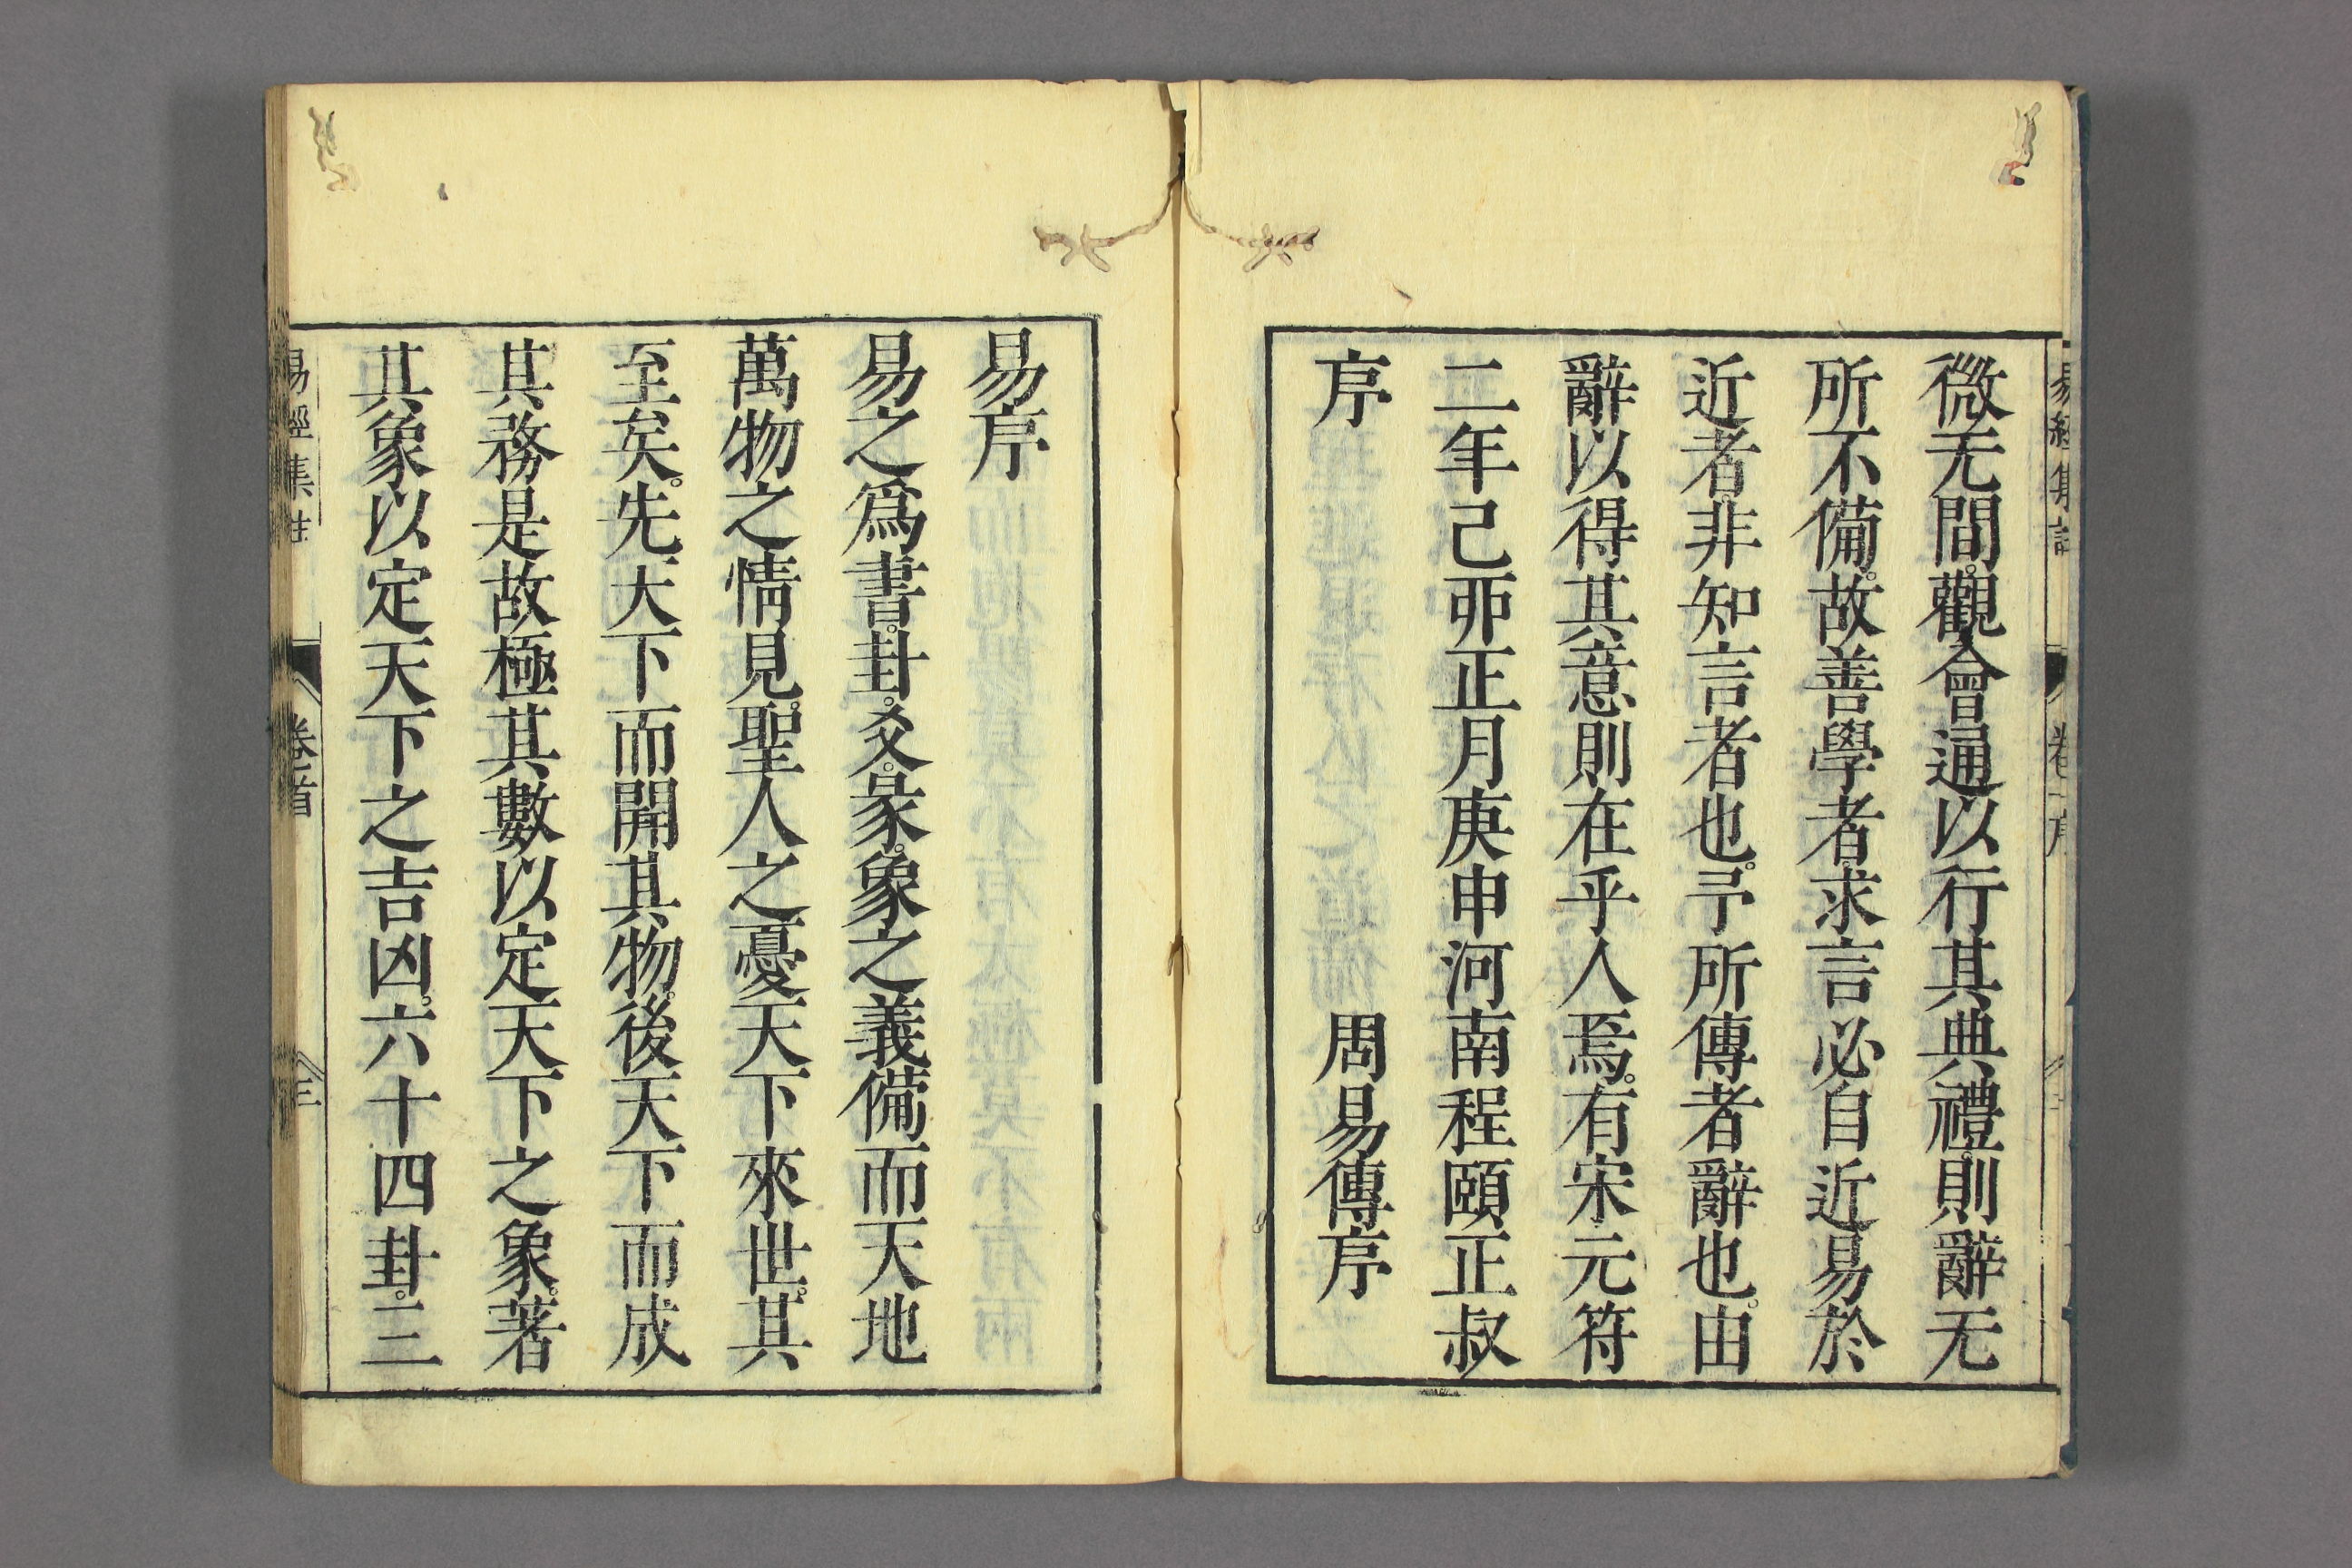 微无間。觀會通以行其典禮。則辭无
所不備。故善學者。求言必自近。易於
近者。非知言者也。予所傳者辭也。由
辭以得其意。則在乎人焉。有宋元符
二年己卯正月庚申河南程頤正叔
序　　　　　　　　周易傳序
易序
易之爲書。卦。爻。彖。象之義備。而天地
萬物之情見。聖人之憂天下來世。其
至矣。先天下而開其物。後天下而成
其務。是故極其數以定天下之象。著
其象以定天下之吉凶。六十四卦。三
易經集註　卷首　三